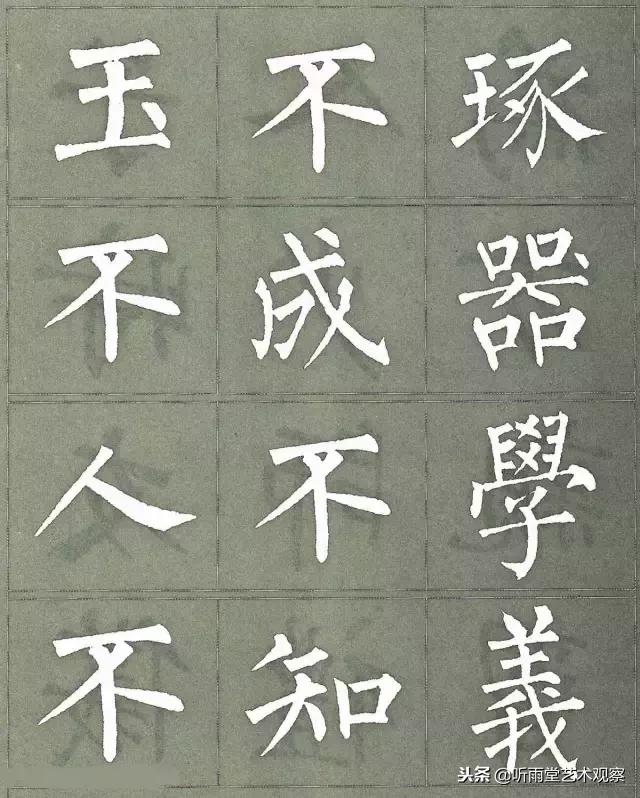 玉不琢
不成器
人不學
不知義
头条@听雨堂艺术观察